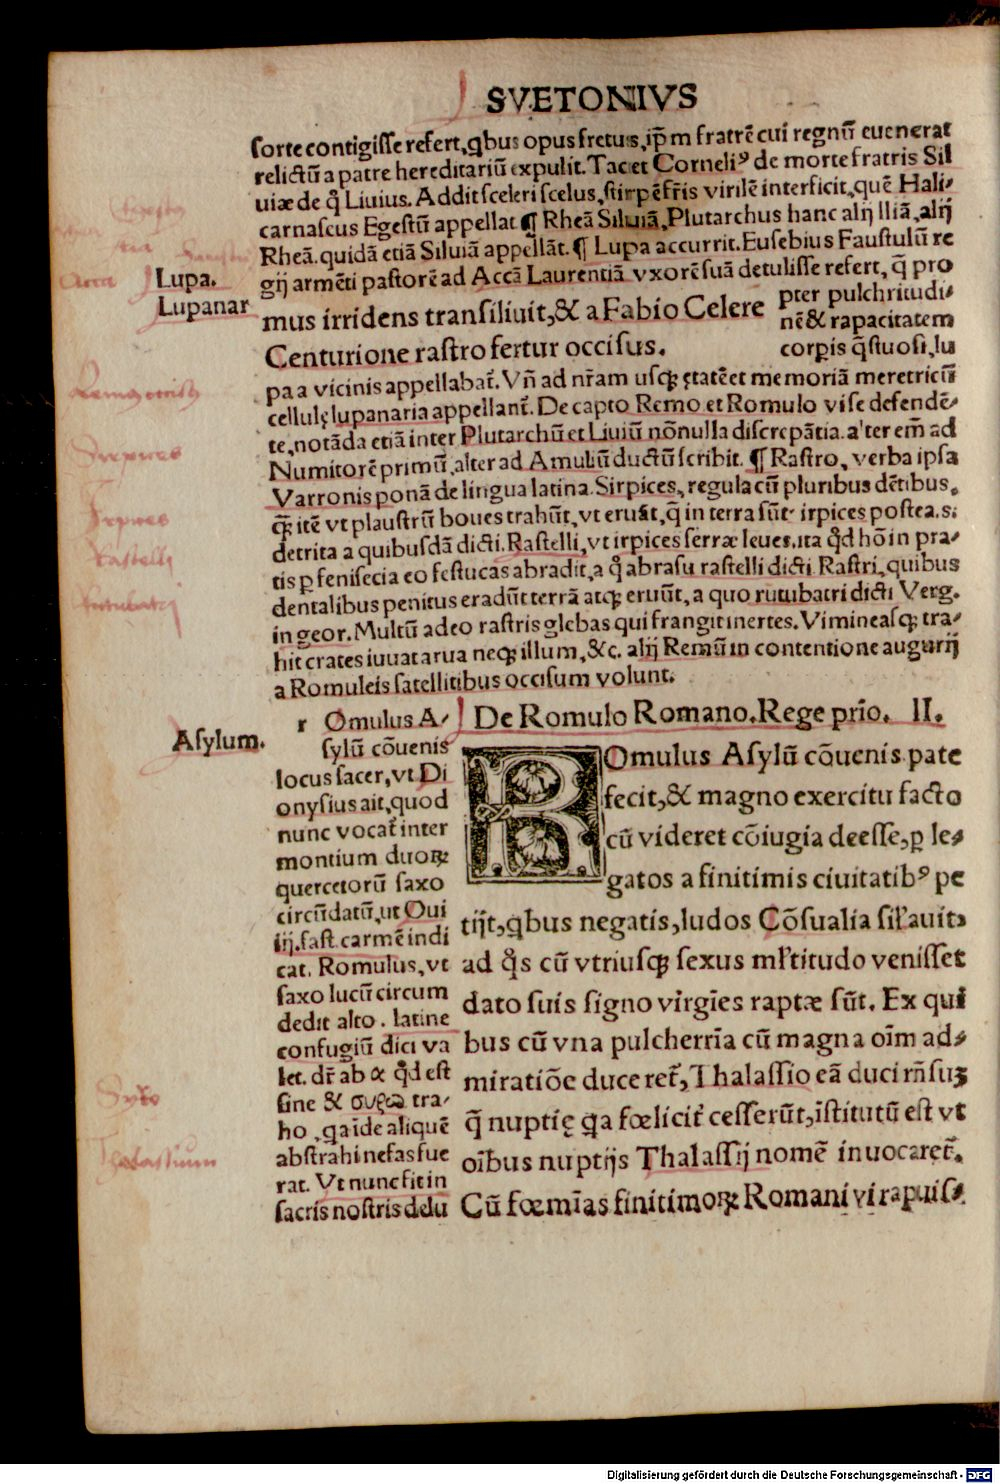 SVETONIVS
sorte contigisse refert, qbus opus fretus, ip̄m fratrē cui regnū euenerat
relictū a patre hereditariū expulit. Tacet Corneliꝰ de morte fratris Sil
uiæ de q̊ Liuius. Addit sceleri scelus, stirpē fr̄is virilē interficit, quē Hali⸗
carnascus Egestū appellat ¶ Rheā Siluiā, Plutarchus hanc alij Iliā, alij
Rheā. quidā etiā Siluiā appellāt. ¶ Lupa accurrit. Eusebius Faustulū re
Lupa.
gij armēti pastorē ad Accā Laurentiā vxorē suā detulisse refert, q̄ pro
Lupanar
pter pulchritudi⸗
nē & rapacitatem
corꝑis q̄stuosi, lu
mus irridens transiliuit, & a Fabio Celere
Centurione rastro fertur occisus.
pa a vicinis appellabat̃. Vñ ad nr̄am usq; ętatē et memoriā meretricū
cellulę lupanaria appellant̃. De capto Remo et Romulo vise defendē⸗
te, notāda etiā inter Plutarchū et Liuiū nōnulla discrepātia. a'ter em̄ ad
Numitorē primū, alter ad Amuliū ductū scribit. ¶ Rastro, verba ipsa
Varronis ponā de lingua latina. Sirpices, regula cū pluribus dētibus,
q̄; itē vt plaustrū boues trahūt, vt eruāt, q̄ in terra sūt· irpices postea .s.
detrita a quibusdā dicti. Rastelli, vt irpices serræ leues. ita q̊d hō in pra⸗
tis ꝑ fenisecia eo festucas abradit, a q̊ abrasu rastelli dicti Rastri, quibus
dentalibus penitus eradūt terrā atq; eruūt, a quo rutubatri dicti Verg.
in geor. Multū adeo rastris glebas qui frangit inertes. Vimineasq; tra⸗
hit crates iuuat arua neq; illum, &c. alij Remū in contentione augurij
a Romuleis satellitibus occisum volunt.
De Romulo Romano. Rege prīo. II.
Asylum.
r Omulus A⸗
sylū cōuenis
locus sacer, vt Di
onysius ait, quod
nunc vocat̃ inter
montium duoꝝ
quercetorū saxo
circūdatū, ut Oui
iij. fast. carmē indi
cat. Romulus, vt
saxo lucū circum
dedit alto . latine
confugiū dici va
let. dr̄ ab α q̊d est
sine & συρω tra⸗
ho , q aīde aliquē
abstrahi nefas fue
rat. Vt nunc fit in
sacris nostris delu
ROmulus Asylū cōuenis pate
fecit, & magno exercitu facto
cū videret cōiugia deesse, ꝑ le⸗
gatos a finitimis ciuitatibꝰ pe
tijt, qbus negatis, ludos Cōsualia sil'auit,
ad q̊s cū vtriusq; sexus ml'titudo venisset
dato suis signo virgīes raptæ sūt. Ex qui
bus cū vna pulcherrīa cū magna oīm ad⸗
miratiōe duceret̃, Thalassio eā duci rñsuꝫ
q̄ nuptię qa fœlicit̃ cesserūt, īstitutū est vt
oībus nuptijs Thalassij nomē inuocaret̃.
Cū fœmīas finitimoꝝ Romani vi rapuis⸗
Thalassium
Digitalisierung gefördert durch die Deutsche Forschungsgemeinschaft - DFG